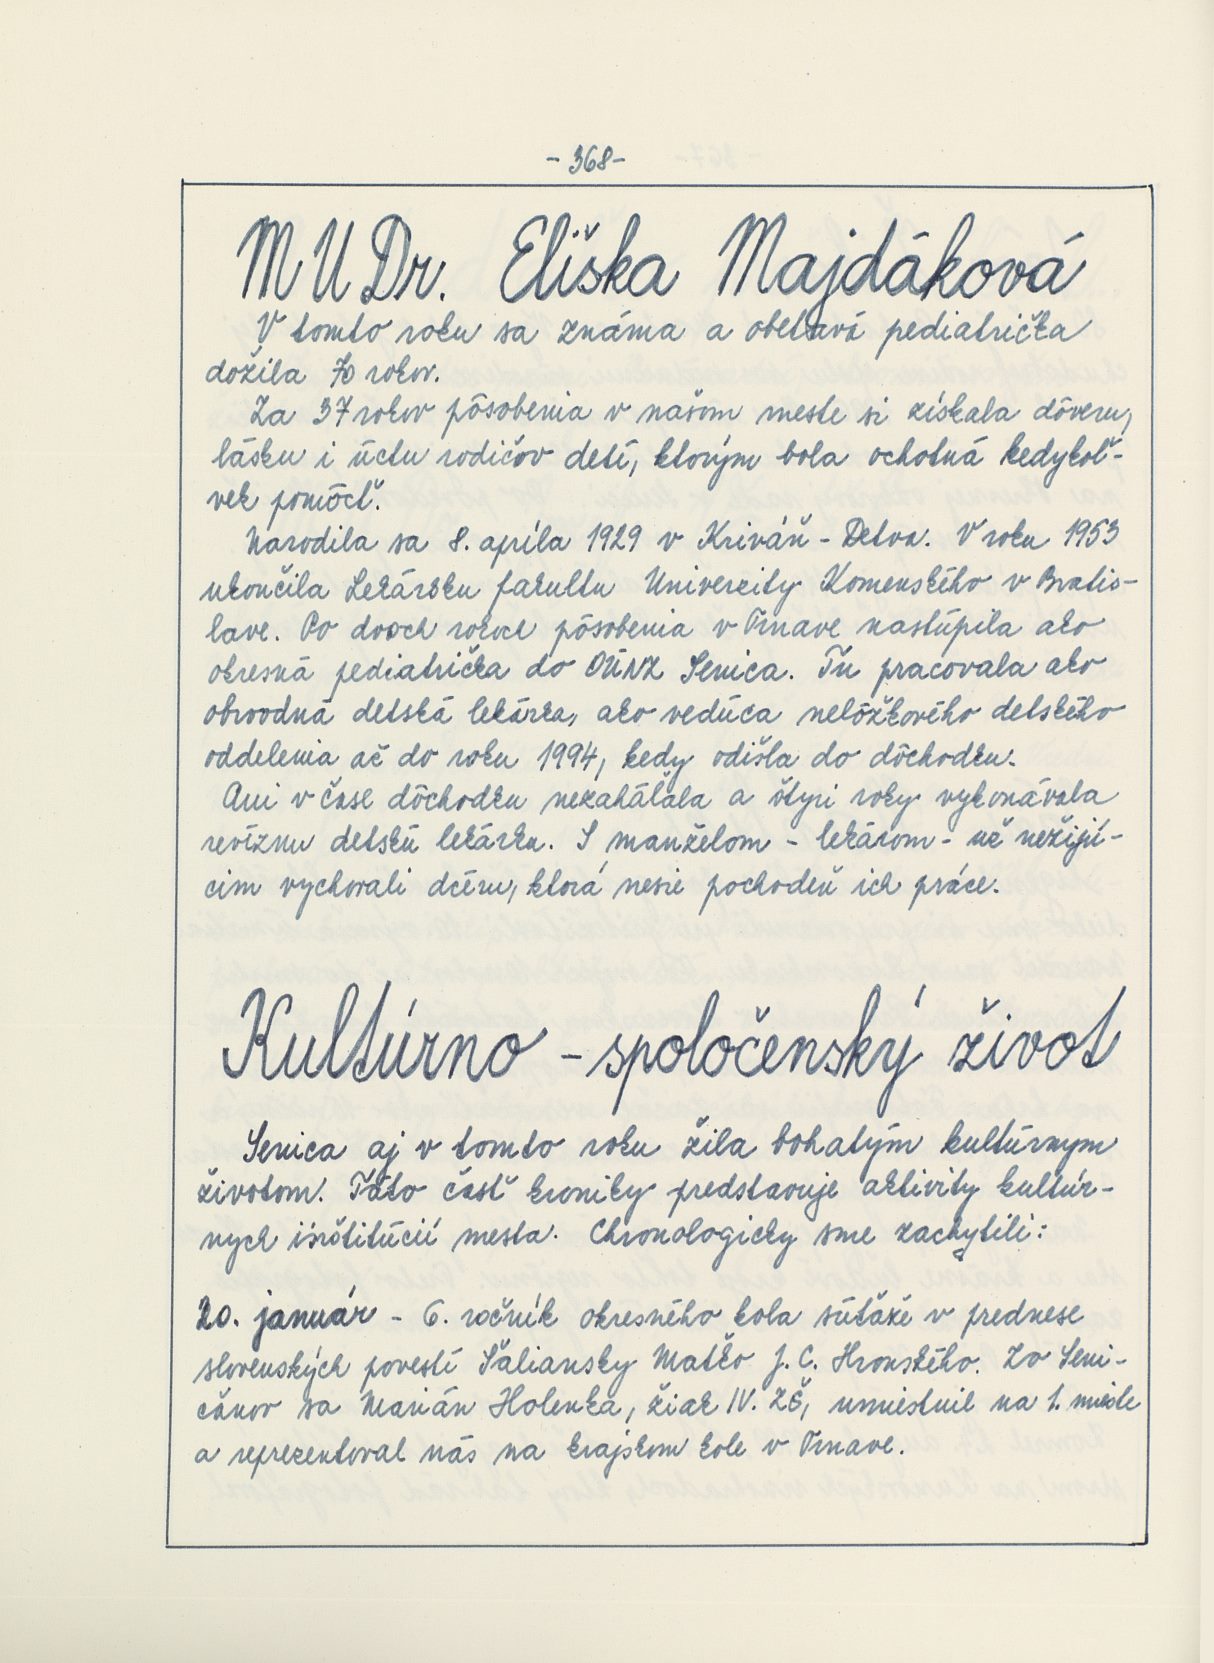 - 368 -
MUDr. Eliška Majdáková
V tomto roku sa známa a obetavá pediatrička
dožila 70 rokov.
Za 37 rokov pôsobenia v našom meste si získala dôveru,
lásku i úctu rodičov detí, ktorým bola ochotná kedykoľ-
vek pomôcť.
Narodila sa 8. apríla 1929 v Kriváň - Detva. V roku 1953
ukončila Lekársku fakultu Univerzity Komenského v Bratis-
lave. Po dvoch rokoch pôsobenia v Trnave nastúpila ako
okresná pediatrička do OÚNZ Senica. Tu pracovala ako
obvodná detská lekárka, ako vedúca nelôžkového detského
oddelenia až do roku 1994, kedy odišla do dôchodku.
Ani v čase dôchodku nezaháľala a štyri roky vykonávala
revíznu detskú lekárku. S manželom - lekárom - už nežijú-
cim vychovali dcéru, ktorá nesie pochodeň ich práce.
Kultúrno - spoločenský život
Senica aj v tomto roku žila bohatým kultúrnym
životom. Táto časť kroniky predstavuje aktivity kultúr-
nych inštitúcií mesta. Chronologicky sme zachytili:
20. január - 6. ročník okresného kola súťaže v prednese
slovenských povestí Šaliansky Maťko J. C. Hronského. Zo Seni-
čanov sa Marián Holenka, žiak IV. ZŠ, umiestnil na 1. mieste
a reprezentoval nás na krajskom kole v Trnave.